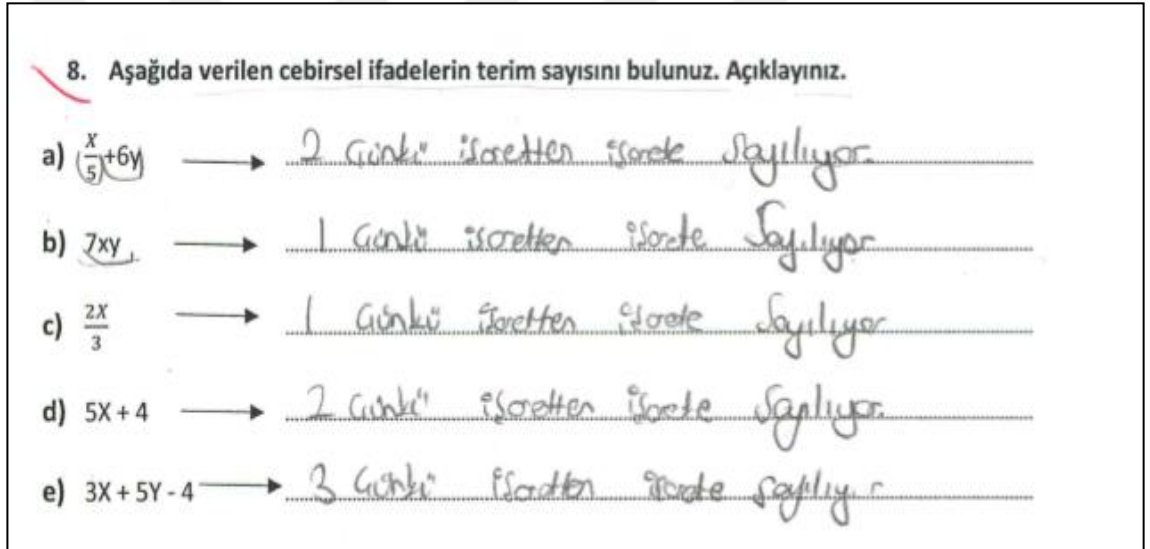 8. Aşağıda verilen cebirsel ifadelerin terim sayısını bulunuz. Açıklayınız.
a) x/5+6y → 2 Günkü işaretten işarete sayılıyor.
b) 7xy → 1 Günkü işaretten işarete sayılıyor
c) 2X/3 → 1 Günkü işaretten işarete sayılıyor
d) 5X + 4 → 2 Günkü işaretten işarete sayılıyor.
e) 3X + 5Y - 4 → 3 Günkü işaretten işarete sayılıyor